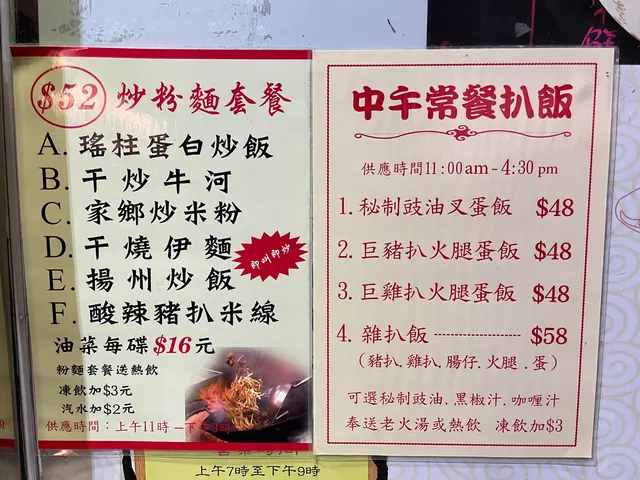 $52 炒粉麵套餐
A. 瑤柱蛋白炒飯
B. 干炒牛河
C. 家鄉炒米粉
D. 干燒伊麵
即叫即炒
E. 揚州炒飯
F. 酸辣豬扒米線
油菜每碟$16元
粉麵套餐送熱飲
凍飲加$3元
汽水加$2元
供應時間：上午11時－下午
中午常餐扒飯
供應時間11:00am-4:30pm
1. 秘制豉油叉蛋飯 $48
2. 巨豬扒火腿蛋飯 $48
3. 巨雞扒火腿蛋飯 $48
4. 雜扒飯 -------------------- $58
（豬扒.雞扒.腸仔.火腿.蛋）
可選秘制豉油.黑椒汁.咖喱汁
奉送老火湯或熱飲 凍飲加$3
上午7時至下午9時